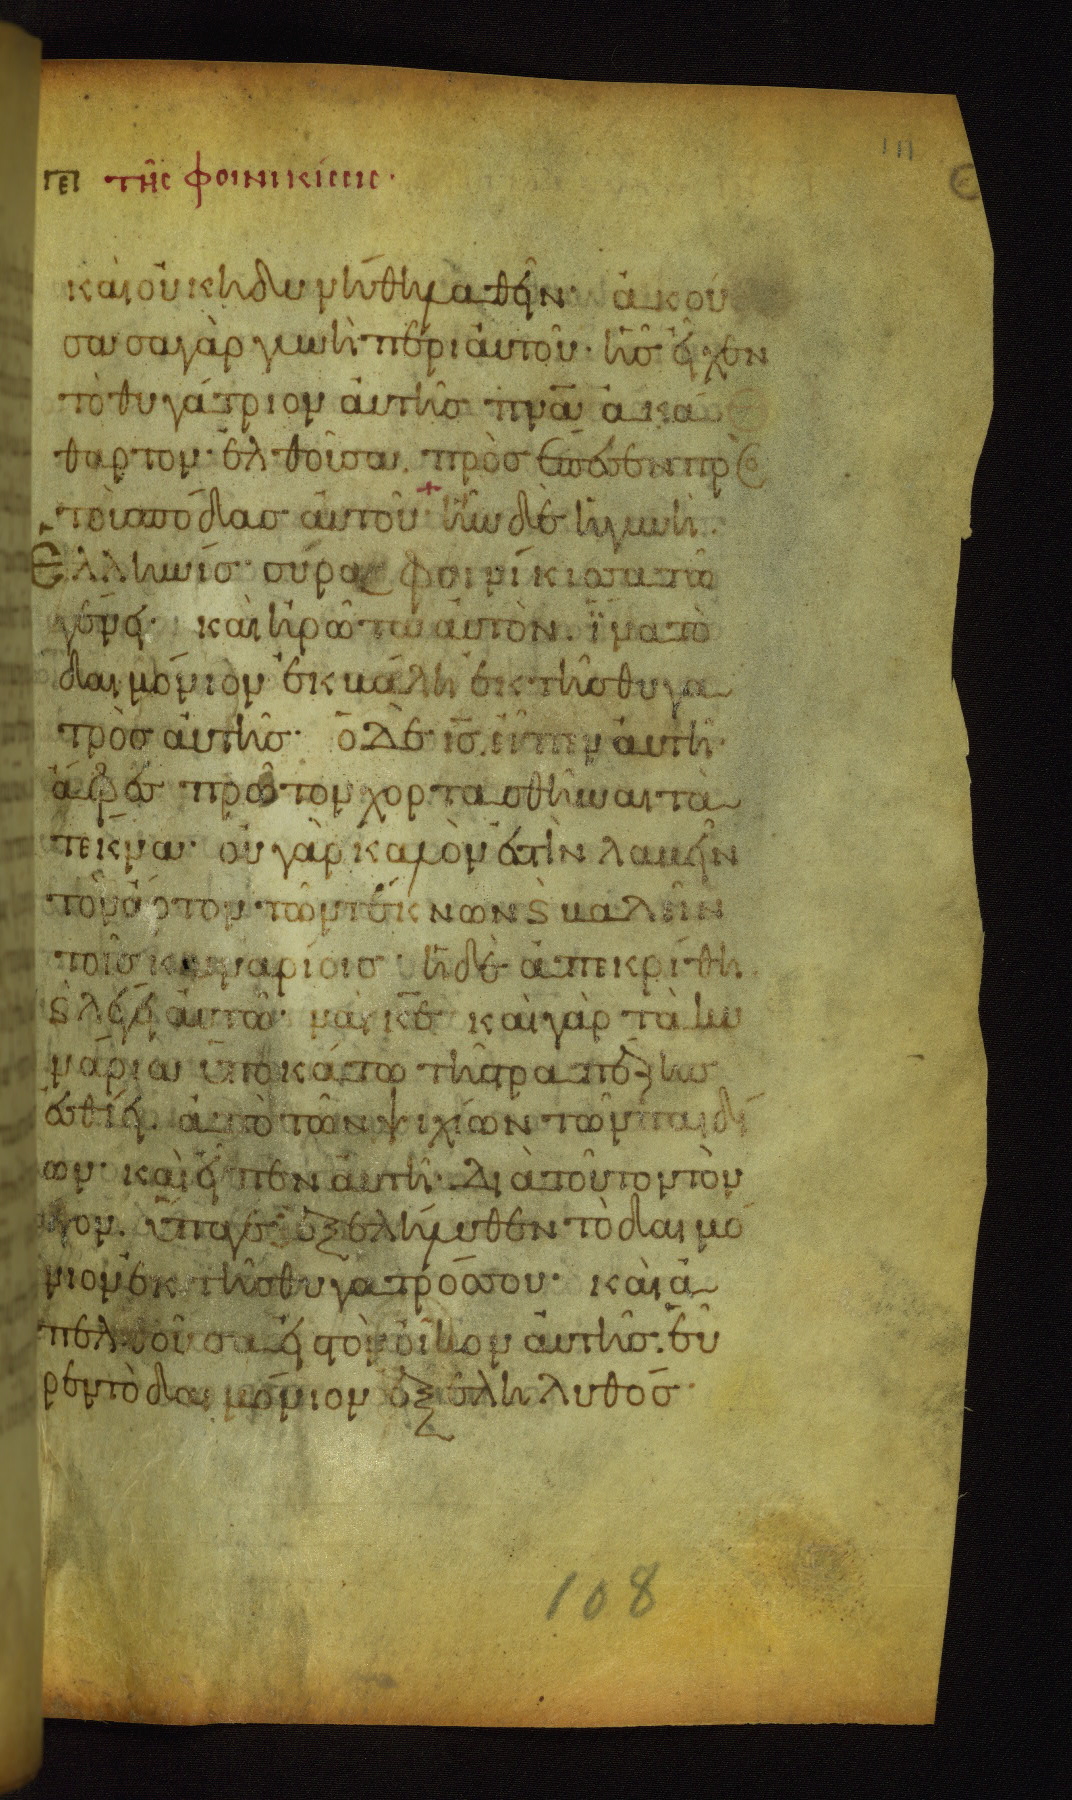 περὶ τῆς φοινικίσσης·
καὶ οὐκ ἠδυνήθη λαθεῖν· ἀκού
σασα γὰρ γυνὴ περὶ αὐτοῦ· ἧς εἶχεν
τὸ θυγάτριον αὐτῆς πνᾶ ἀκά
θαρτον· ἐλθοῦσα προσέπεσεν πρὸς
τοὺς πόδας αὐτοῦ + ἦν δὲ ἡ γυνὴ
Ἑλληνίς· σύρα φοινίκισσα τῶ
γένει· καὶ ἠρώτα αὐτὸν. ἵνα τὸ
δαιμόνιον ἐκβάλη ἐκ τῆς θυγα
τρὸς αὐτῆς· ὁ δὲ ις̄ εἶπεν αὐτῆ·
ἄφες πρῶτον χορτασθῆναι τὰ
τέκνα· οὐ γὰρ καλὸν ἐστὶν λαβεῖν
τὸν ἄρτον τῶν τέκνων ϛ βαλεῖν
τοῖς κυναρίοις· ἡ δὲ ἀπεκρίθη
ϛ λέγει αὐτῶ· ναὶ κε̄ καὶ γὰρ τὰ κυ
νάρια ὑποκάτω τῆς τραπέζης
ἐσθίει ἀπὸ τῶν ψιχίων τῶν παιδί
ων· καὶ εἶπεν αὐτῆ· διὰ τοῦτον τὸν
λόγον. ὕπαγε· ἐξελήλυθεν τὸ δαιμό
νιον ἐκ τῆς θυγατρός σου· καὶ ἀ
πελθοῦσα εἰς τὸν οἶκον αὐτῆς. εὗ
ρεν τὸ δαιμόνιον ἐξεληλυθός·
108